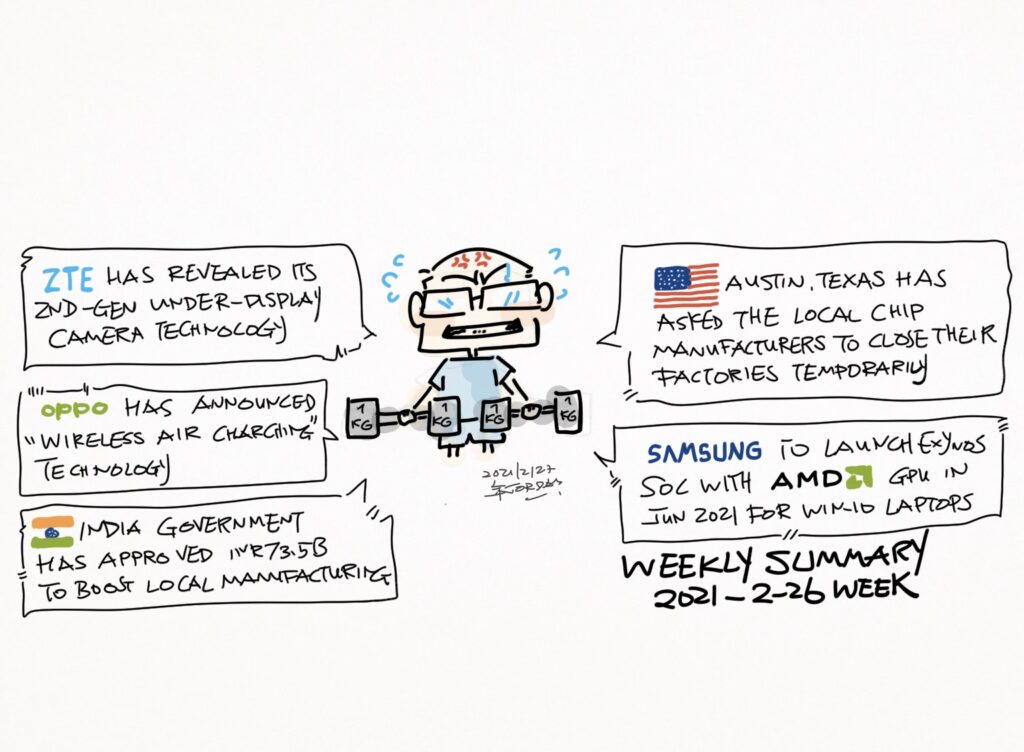 ZTE HAS REVEALED ITS
2ND-GEN UNDER-DISPLAY
CAMERA TECHNOLOGY
OPPO HAS ANNOUNCED
"WIRELESS AIR CHARGING"
TECHNOLOGY
INDIA GOVERNMENT
HAS APPROVED INR73.5B
TO BOOST LOCAL MANUFACTURING
1
KG
1
KG
1
KG
1
KG
2021/2/27
AUSTIN, TEXAS HAS
ASKED THE LOCAL CHIP
MANUFACTURERS TO CLOSE THEIR
FACTORIES TEMPORARILY
SAMSUNG TO LAUNCH EXYNOS
SOC WITH AMD GPU IN
JUN 2021 FOR WIN-10 LAPTOPS
WEEKLY SUMMARY
2021-2-26 WEEK